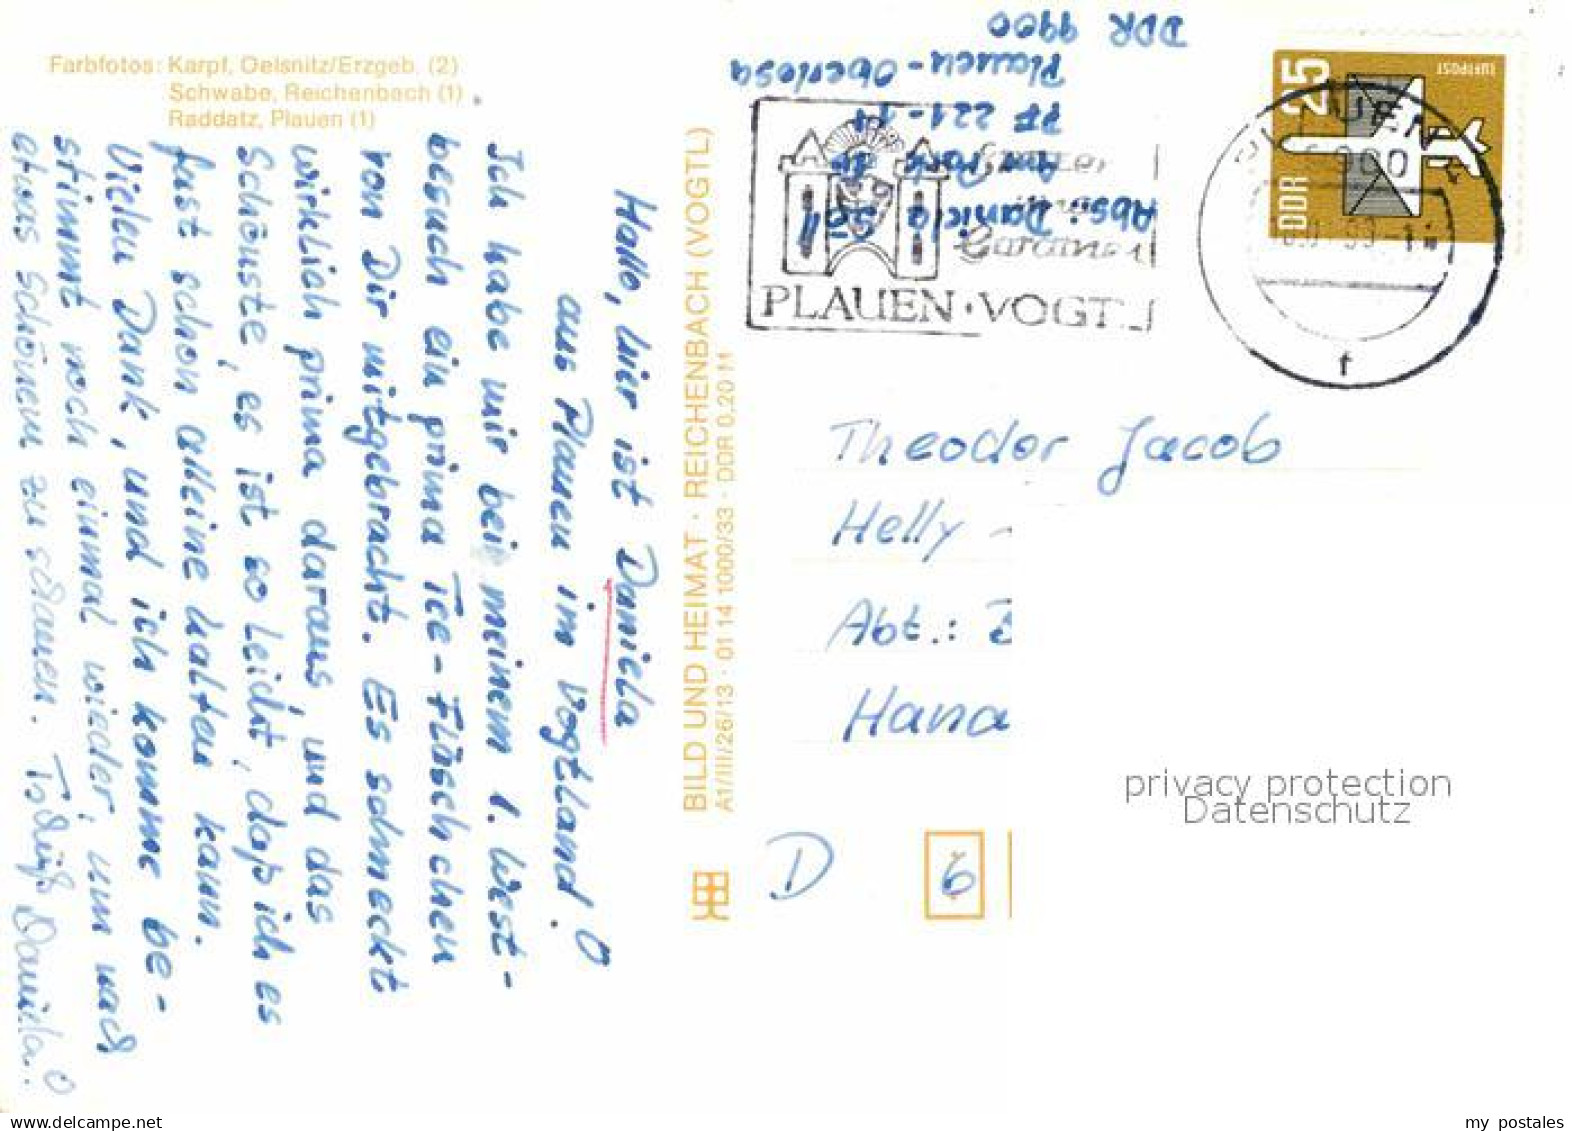 Farbfotos: Karpf, Oelsnitz/Erzgeb. (2)
Schwabe, Reichenbach (1)
Raddatz, Plauen (1)
Hallo, hier ist Daniela
aus Plauen im Vogtland!
Ich habe mir bei meinem 1. West-
besuch ein prima Tee-Fläschchen
von Dir mitgebracht. Es schmeckt
wirklich prima daraus, und das
Schönste, es ist so leicht, daß ich es
fast schon alleine halten kann.
Vielen Dank, und ich komme be-
stimmt noch einmal wieder, um nach
etwas Schönem zu schauen. Tschüß Daniela!
BILD UND HEIMAT · REICHENBACH (VOGTL)
A1/III/26/13 · 01 14 1000/33 · DDR 0,20 M
Abs.: Daniela
Am Park
PF 221-11
Plauen-Oberlosa
DDR 9900
PLAUEN · VOGTL
PLAUEN
f
DDR 25
LUFTPOST
Theodor Jacob
Helly -
Abt.:
Hana
D
6
privacy protection
Datenschutz
my postales